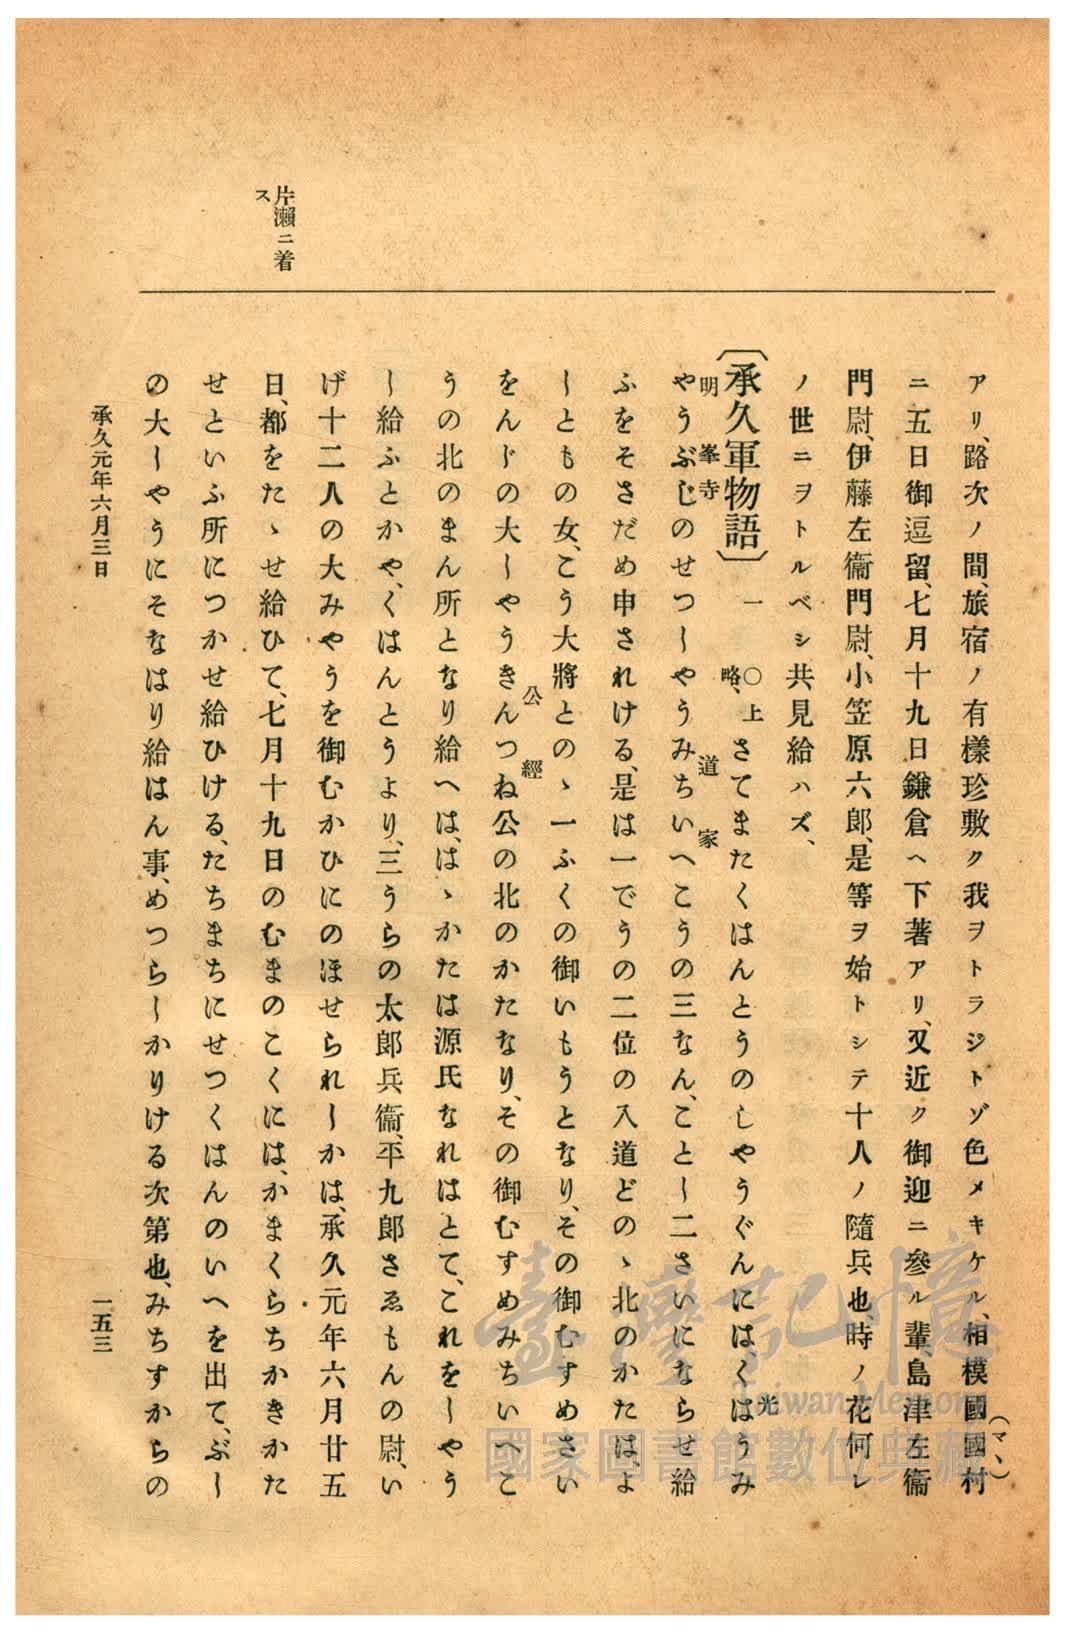 片瀨ニ着
ス
アリ、路次ノ間、旅宿ノ有樣珍敷ク我ヲトラジトゾ色メキケル、相模國國村
(マヽ)
ニ五日御逗留、七月十九日鎌倉ヘ下著アリ、又近ク御迎ニ參ル輩島津左衞
門尉、伊藤左衞門尉、小笠原六郎、是等ヲ始トシテ十人ノ隨兵也時ノ花何レ
ノ世ニヲトルベシ共見給ハズ、
〔承久軍物語〕 一 〇上略、さてまたくはんとうのしやうぐんにはくはうみ
光
明峯寺 道家
やうぶじのせつしやうみちいへこうの三なん、ことし二さいにならせ給
ふをそさだめ申されける、是は一でうの二位の入道どのゝ北のかたは、よ
しともの女、こう大將とのゝ一ふくの御いもうとなり、その御むすめさい
公經
をんじの大しやうきんつね公の北のかたなり、その御むすめみちいへこ
うの北のまん所となり給へは、はゝかたは源氏なれはとて、これをしやう
し給ふとかや、くはんとうより、三うらの太郎兵衞、平九郎さゑもんの尉、い
げ十二人の大みやうを御むかひにのほせられしかは、承久元年六月廿五
日、都をたゝせ給ひて、七月十九日のむまのこくには、かまくらちかきかた
せといふ所につかせ給ひける、たちまちにせつくはんのいへを出て、ぶし
の大しやうにそなはり給はん事、めつらしかりける次第也、みちすからの
承久元年六月三日
一五三
臺灣記憶
Taiwan Memory
國家圖書館數位典藏